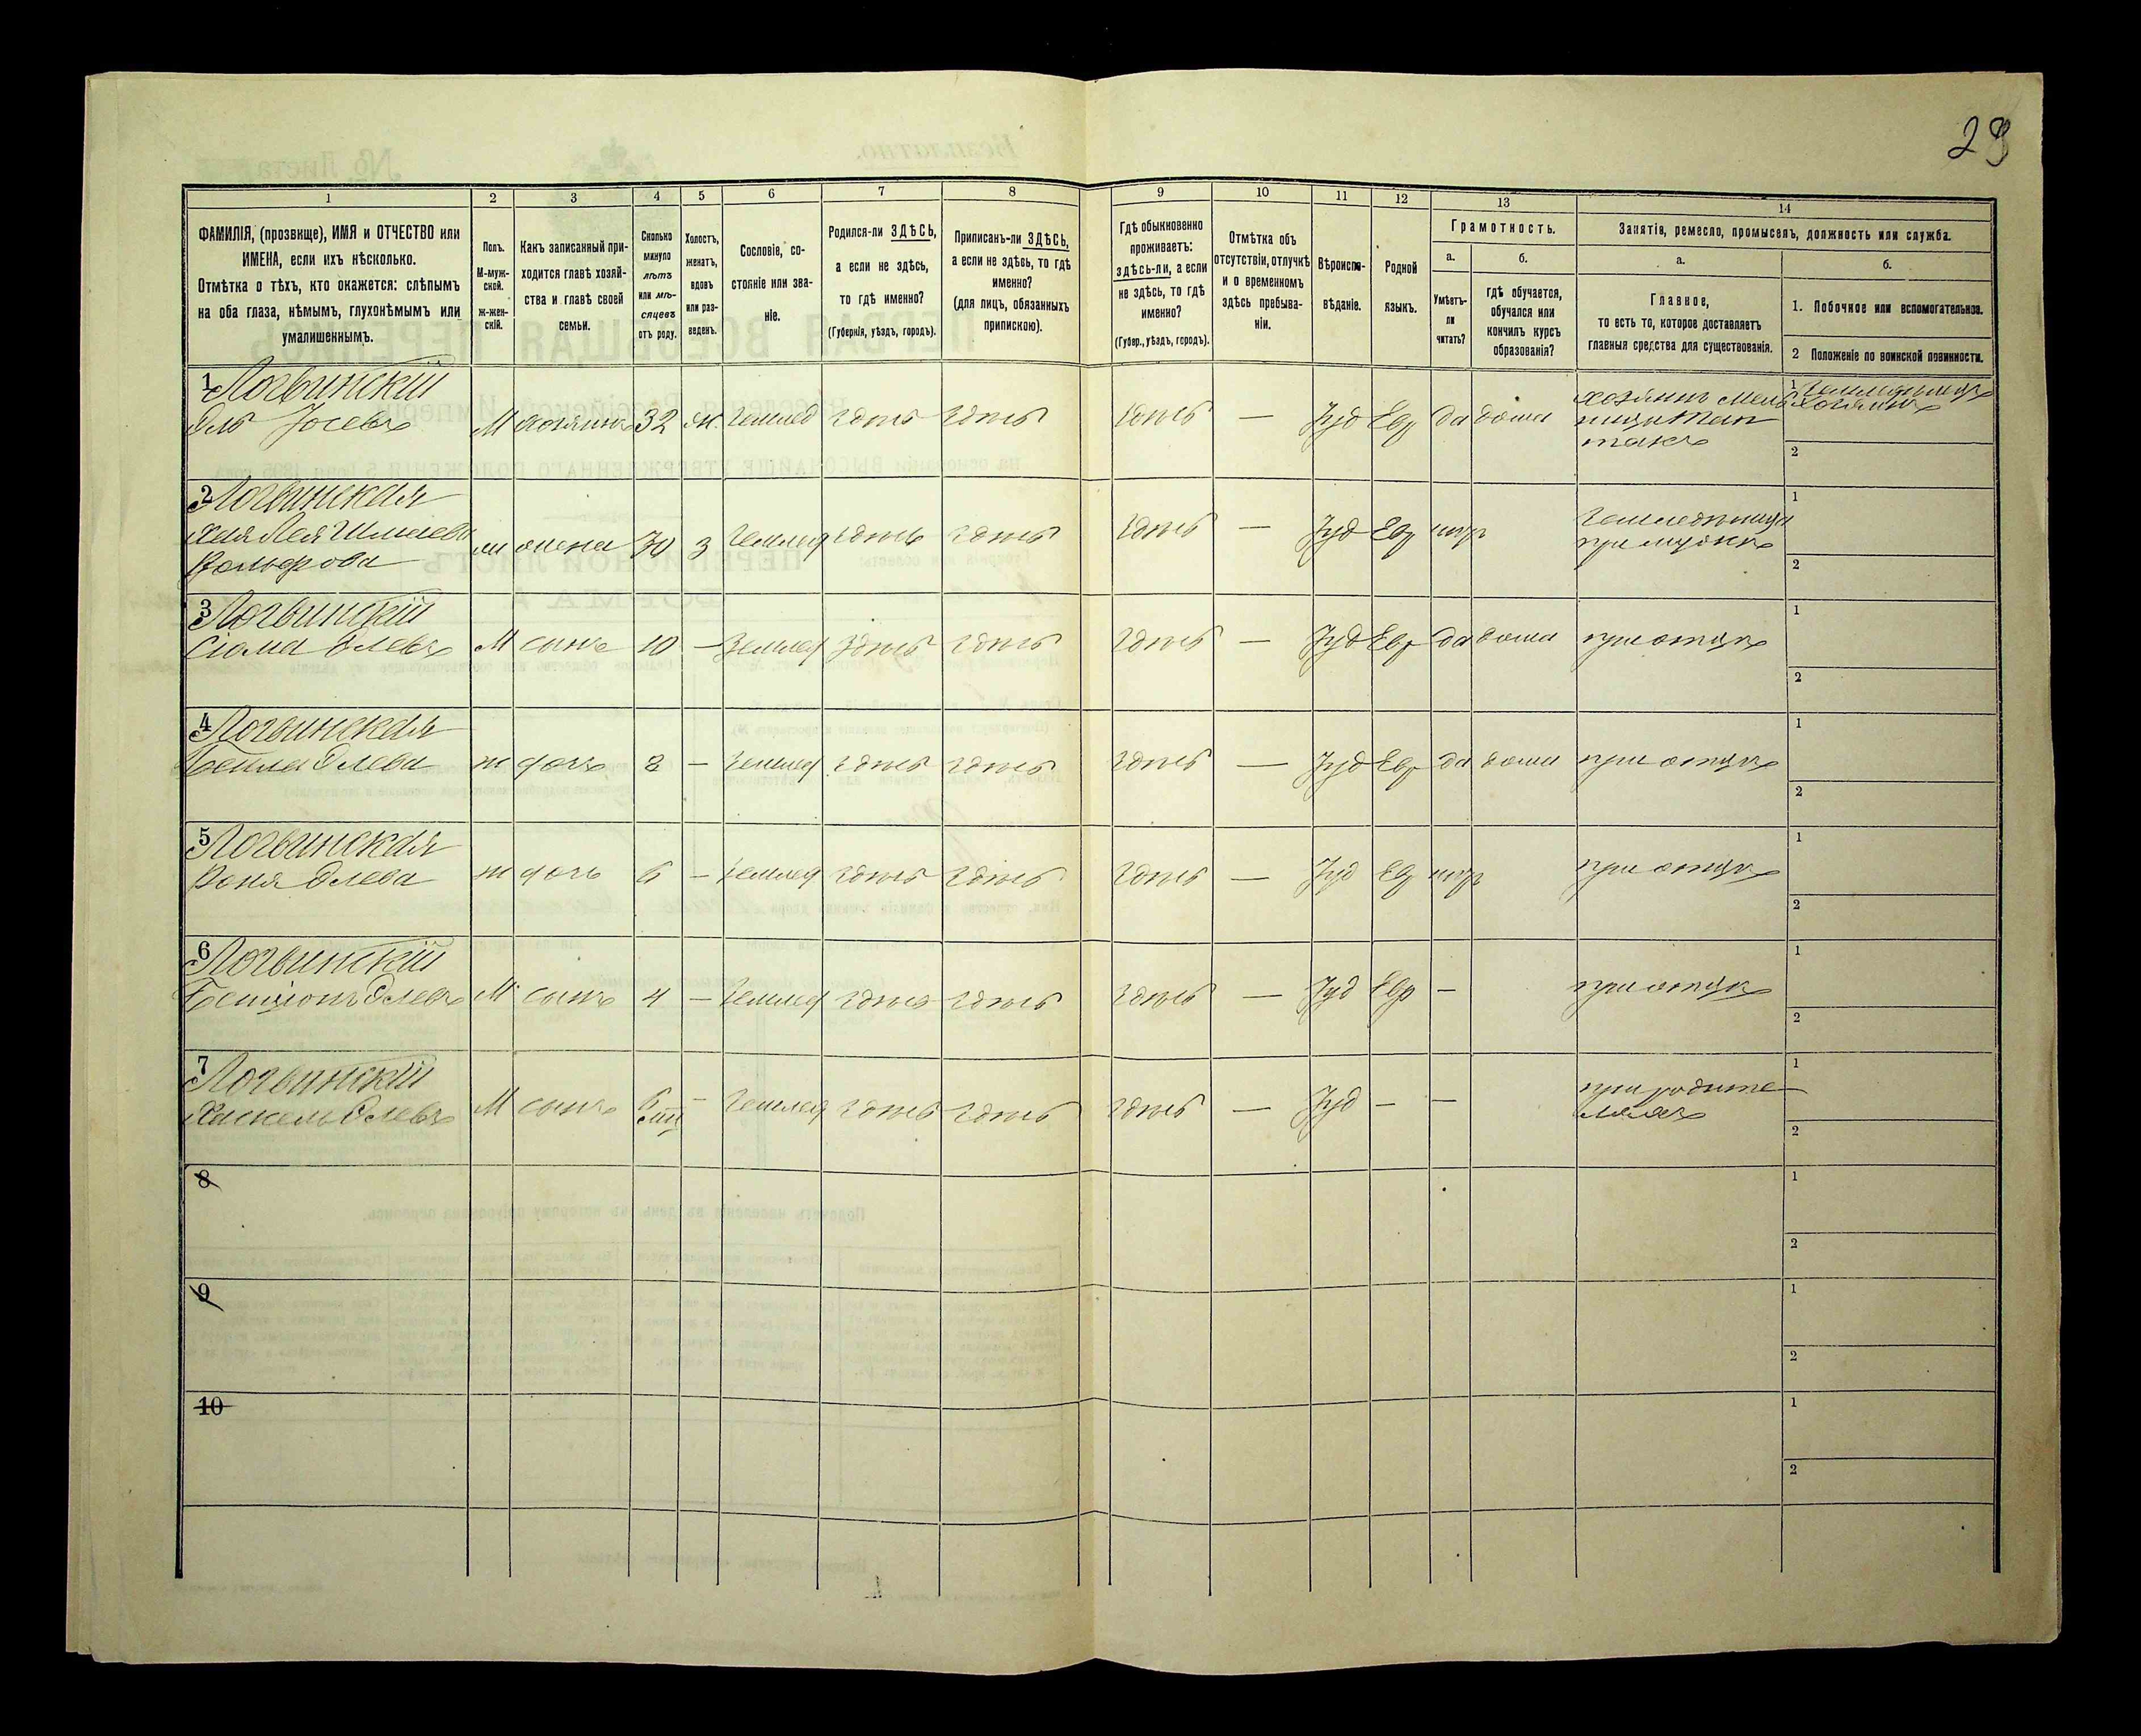 29
1
2
3
4
5
6
7
8
9
10
11
12
13
14
ФАМИЛІЯ, (прозвище), ИМЯ и ОТЧЕСТВО или
ИМЕНА, если ихъ нѣсколько.
Отмѣтка о тѣхъ, кто окажется: слѣпымъ
на оба глаза, нѣмымъ, глухонѣмымъ или
умалишеннымъ.
Полъ.
М-муж-
ской.
ж-жен-
скій.
Какъ записанный при-
ходится главѣ хозяй-
ства и главѣ своей
семьи.
Сколько
минуло
лѣтъ
или мѣ-
сяцевъ
отъ роду.
Холостъ,
женатъ,
вдовъ
или раз-
веденъ.
Сословіе, со-
стояніе или зва-
ніе.
Родился-ли ЗДѢСЬ,
а если не здѣсь,
то гдѣ именно?
(Губернія, уѣздъ, городъ).
Приписанъ-ли ЗДѢСЬ,
а если не здѣсь, то гдѣ
именно?
(для лицъ, обязанныхъ
припискою).
Гдѣ обыкновенно
проживаетъ:
здѣсь-ли, а если
не здѣсь, то гдѣ
именно?
(Губер., уѣздъ, городъ).
Отмѣтка объ
отсутствіи, отлучкѣ
и о временномъ
здѣсь пребыва-
ніи.
Вѣроиспо-
вѣданіе.
Родной
языкъ.
Грамотность.
а.
Умѣетъ-
ли
читать?
б.
гдѣ обучается,
обучался или
кончилъ курсъ
образованія?
Занятія, ремесло, промыселъ, должность или служба.
а.
Главное,
то есть то, которое доставляетъ
главныя средства для существованія.
б.
1. Побочное или вспомогательное.
2 Положеніе по воинской повинности.
1 Логвинскій
Эль Іосевъ М хозяинъ 32 ж. Землед здѣсь здѣсь здѣсь — Іуд Евр да дома хозяинъ мель
1
2
2 Логвинская
Хая Лея Шлиова
Вольфова жена 30 з Землед здѣсь здѣсь здѣсь — Іуд Евр нѣтъ
при мужѣ
1
2
3 Логвинскій
Сіома Элевъ М сынъ 10 — Землед здѣсь здѣсь здѣсь — Іуд Евр да дома при отцѣ
1
2
4 Логвинская
Элева ж дочь 8 — Землед здѣсь здѣсь здѣсь — Іуд Евр да дома при отцѣ
1
2
5 Логвинская
Роня Элева ж дочь 6 — Землед здѣсь здѣсь здѣсь — Іуд Евр нѣтъ при отцѣ
1
2
6 Логвинскій
Бенціонъ Элевъ М сынъ 4 — Землед здѣсь здѣсь здѣсь — Іуд Евр — при отцѣ
1
2
7 Логвинскій
Хаскель Элевъ М сынъ 6 — Землед здѣсь здѣсь здѣсь — Іуд — — при родите
ляхъ
1
2
8
1
2
9
1
2
10
1
2